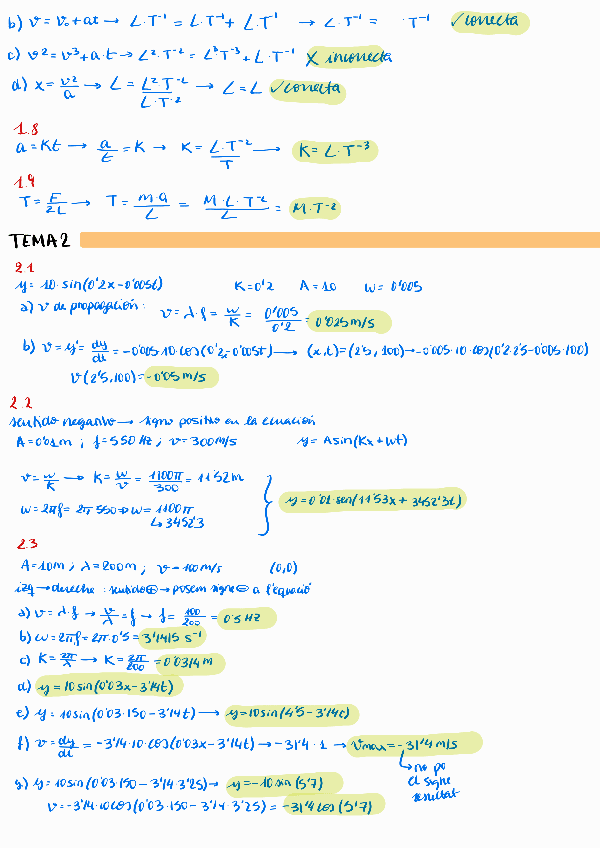 b) v = v₀ + at → L·T⁻¹ = L·T⁻¹ + L·T⁻¹ → L·T⁻¹ = ·T⁻¹ ✓correcta
c) v² = v³ + a·t → L²·T⁻² = L³T⁻³ + L·T⁻¹ X incorrecta
d) x = v²/a → L = L²·T⁻²/L·T⁻² → L = L ✓correcta
1.8
a = Kt → a/t = K → K = L·T⁻²/T → K = L·T⁻³
1.9
T = F/2L → T = m·a/L = M·L·T⁻²/L = M·T⁻²
TEMA 2
2.1
y = 10·sin(0'2x - 0'005t) K = 0'2 A = 10 w = 0'005
a) v de propagación: v = λ·f = w/K = 0'005/0'2 = 0'025 m/s
b) v = y' = dy/dt = -0'005·10·cos(0'2x - 0'005t) → (x,t) = (2'5, 100) → -0'005·10·cos(0'2·2'5 - 0'005·100)
v(2'5, 100) = -0'05 m/s
2.2
sentido negativo → signo positivo en la ecuación
A = 0'01m ; f = 550 Hz ; v = 300 m/s y = A sin(Kx + wt)
v = w/K → K = w/v = 1100π/300 = 11'52 m
w = 2πf = 2π·550 → w = 1100π
↳ 3452'3
y = 0'01·sen(11'53x + 3452'3t)
2.3
A = 10m ; λ = 200m ; v = 100 m/s (0,0)
izq → derecha : sentido ⊕ → posem signe ⊖ a l'equació
a) v = λ·f → v/λ = f → f = 100/200 = 0'5 Hz
b) w = 2πf = 2π·0'5 = 3'1415 s⁻¹
c) K = 2π/λ → K = 2π/200 = 0'0314 m
d) y = 10 sin(0'03x - 3'14t)
e) y = 10 sin(0'03·150 - 3'14t) → y = 10 sin(4'5 - 3'14t)
f) v = dy/dt = -3'14·10·cos(0'03x - 3'14t) → -31'4·1 → Vmax = -31'4 m/s
↳ no po
el signe
resultat
g) y = 10 sin(0'03·150 - 3'14·3'25) → y = -10 sin(5'7)
v = -3'14·10 cos(0'03·150 - 3'14·3'25) = -31'4 cos(5'7)